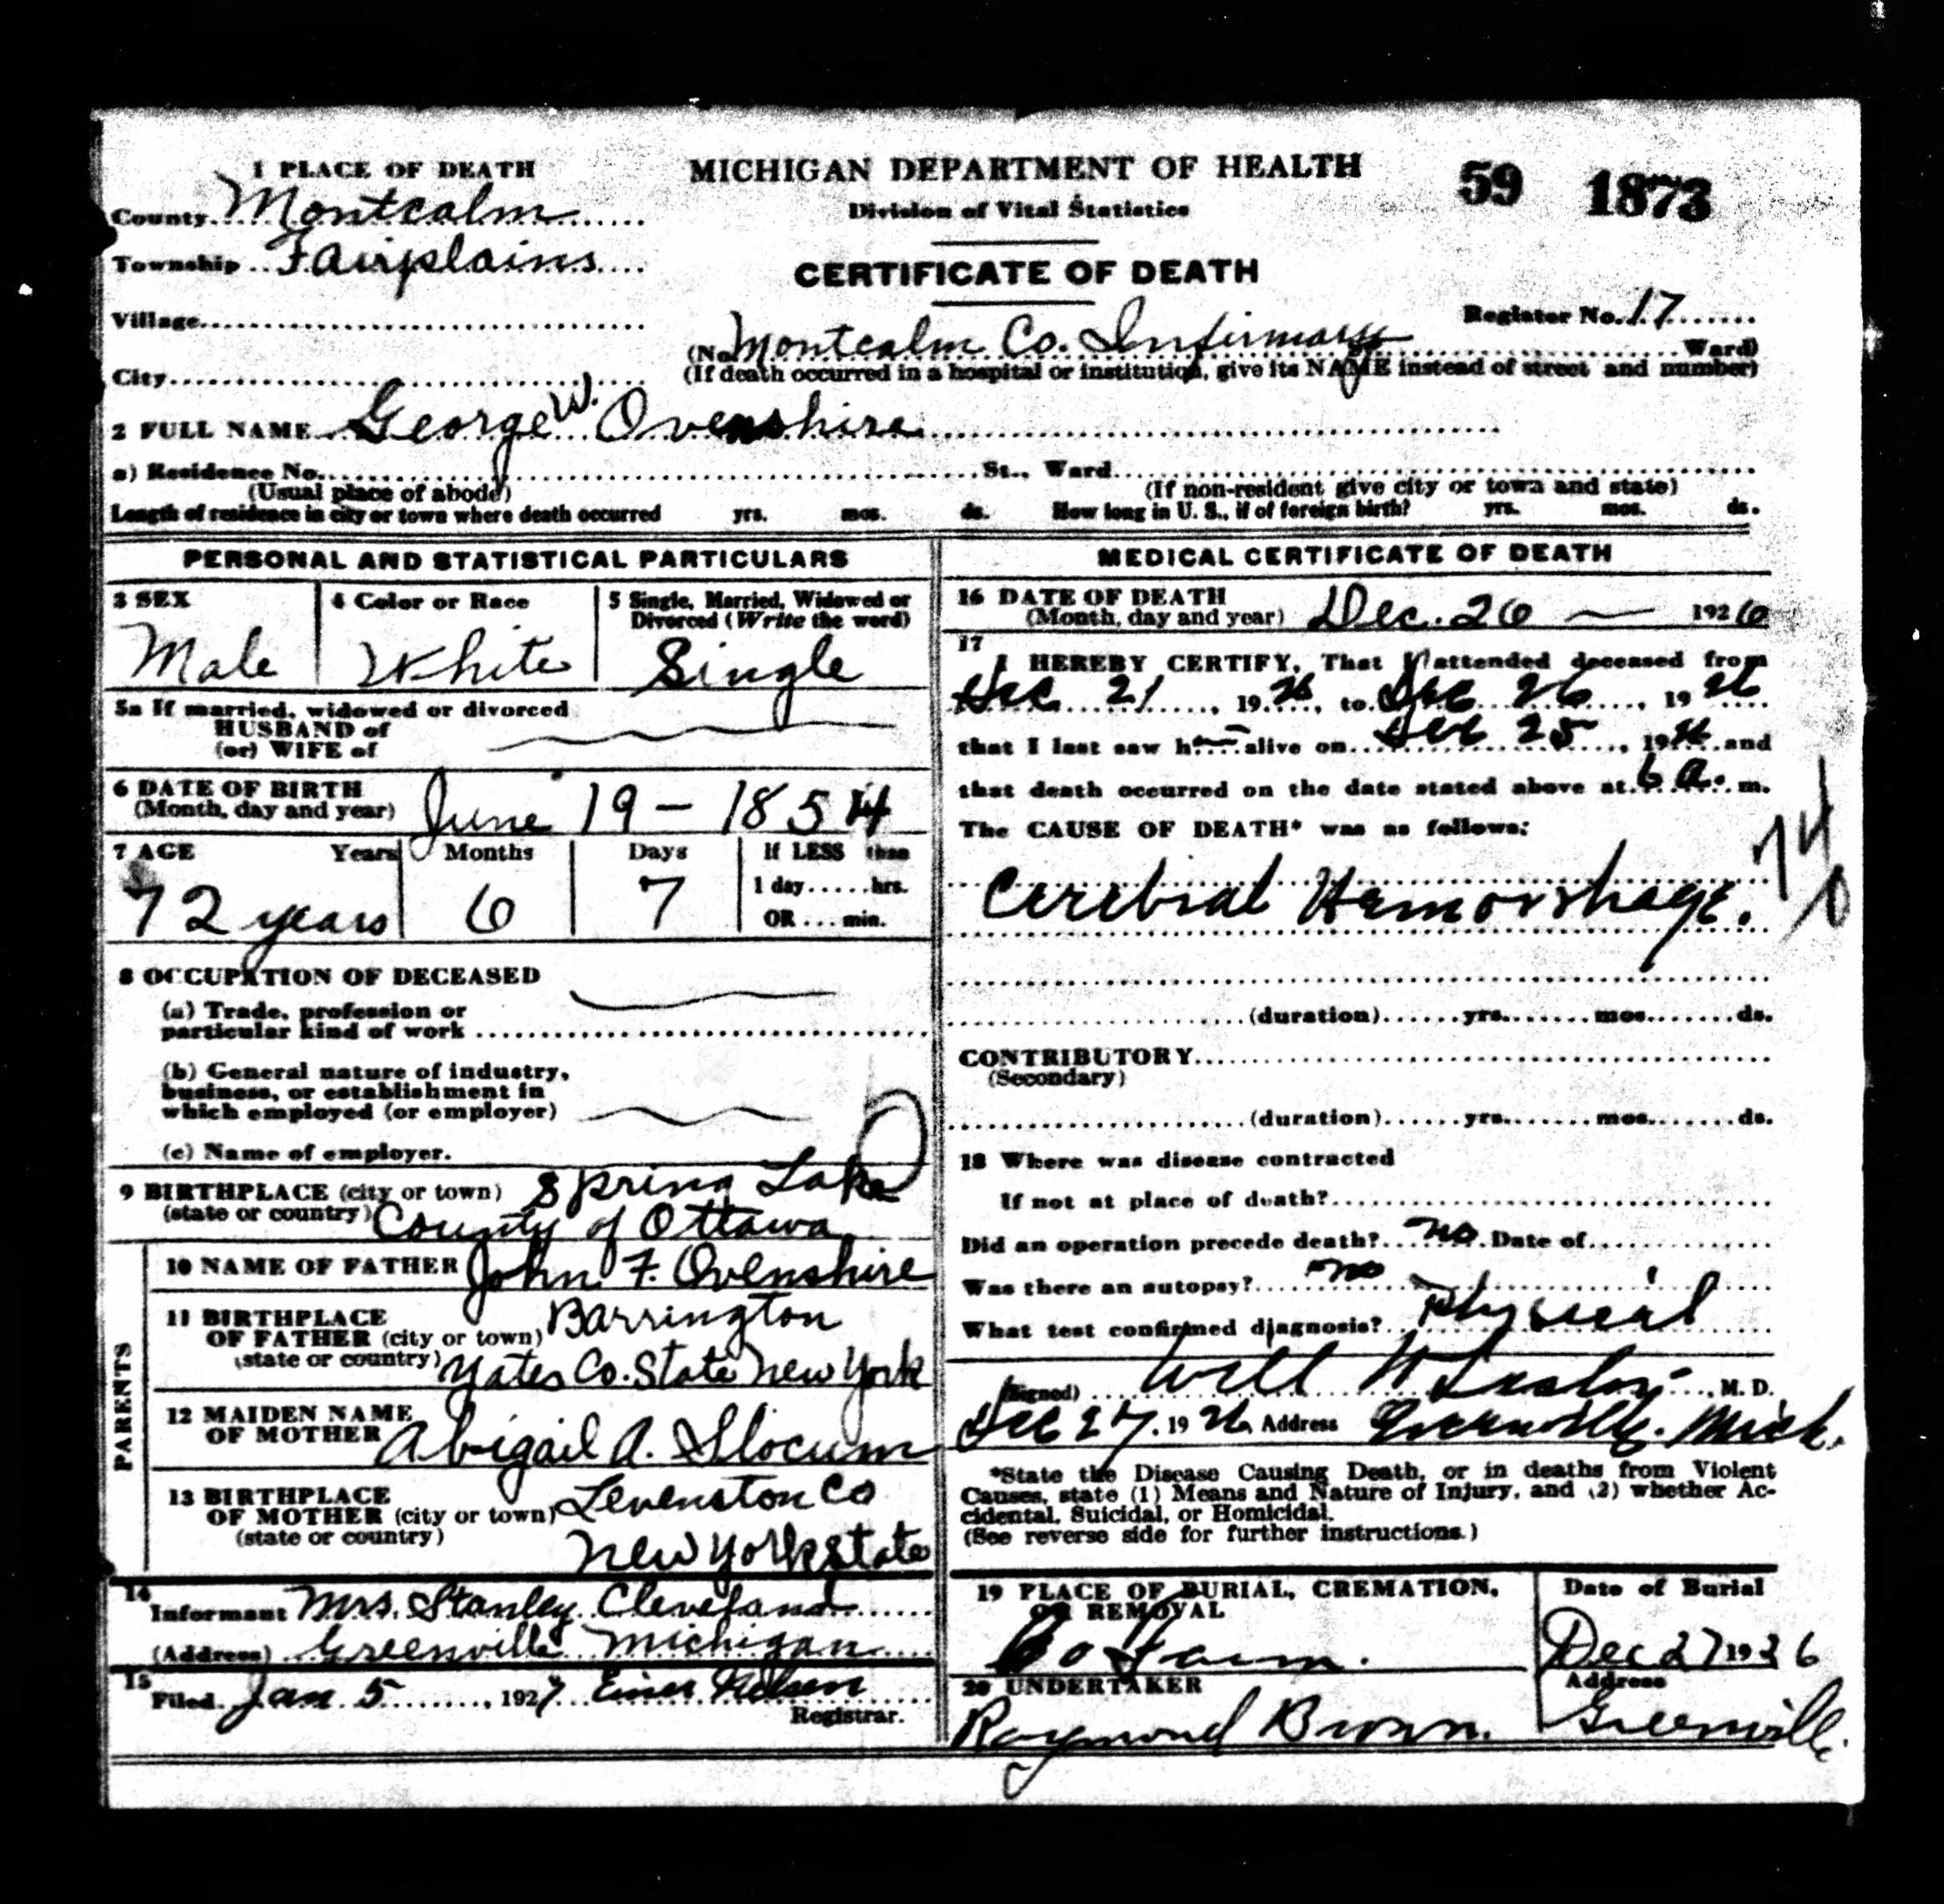 1 PLACE OF DEATH
County Montcalm
Township Fairplains
Village
City
MICHIGAN DEPARTMENT OF HEALTH
Division of Vital Statistics
CERTIFICATE OF DEATH
59 1873
Register No. 17
(No. Montcalm Co. Infirmary Ward)
(If death occurred in a hospital or institution, give its NAME instead of street and number)
2 FULL NAME George W. Ovenshire
a) Residence No. St., Ward
(Usual place of abode) (If non-resident give city or town and state)
Length of residence in city or town where death occurred yrs. mos. ds. How long in U. S., if of foreign birth? yrs. mos. ds.
PERSONAL AND STATISTICAL PARTICULARS
3 SEX
Male
4 Color or Race
White
5 Single, Married, Widowed or
Divorced (Write the word)
Single
5a If married, widowed or divorced
HUSBAND of
(or) WIFE of
6 DATE OF BIRTH
(Month, day and year) June 19 - 1854
7 AGE Years Months Days If LESS than
1 day......hrs.
OR ... min.
72 years 6 7
8 OCCUPATION OF DECEASED
(a) Trade, profession or
particular kind of work
(b) General nature of industry,
business, or establishment in
which employed (or employer)
(c) Name of employer.
9 BIRTHPLACE (city or town) Spring Lake
(state or country) County of Ottawa
PARENTS
10 NAME OF FATHER John F. Ovenshire
11 BIRTHPLACE
OF FATHER (city or town) Barrington
(state or country) Yates Co. State New York
12 MAIDEN NAME
OF MOTHER Abigail A. Slocum
13 BIRTHPLACE
OF MOTHER (city or town) Levenston Co
(state or country) New York State
14
Informant Mrs. Stanley Cleveland
(Address) Greenville Michigan
15
Filed Jan 5, 1927 Einer Nelsen
Registrar.
MEDICAL CERTIFICATE OF DEATH
16 DATE OF DEATH
(Month, day and year) Dec. 26 — 1926
17
I HEREBY CERTIFY, That I attended deceased from
Dec 21, 1926, to Dec 26, 1926
that I last saw h alive on Dec 25, 1926 and
that death occurred on the date stated above at 6 a. m.
The CAUSE OF DEATH* was as follows:
74
Cerebral Hemorrhage.
(duration) yrs. mos. ds.
CONTRIBUTORY
(Secondary)
(duration) yrs. mos. ds.
18 Where was disease contracted
If not at place of death?
Did an operation precede death? no Date of
Was there an autopsy? no
What test confirmed diagnosis? Physical
(Signed) Will , M. D.
Dec 27, 1926 Address Greenville. Mich.
*State the Disease Causing Death, or in deaths from Violent
Causes, state (1) Means and Nature of Injury, and (2) whether Ac-
cidental, Suicidal, or Homicidal.
(See reverse side for further instructions.)
19 PLACE OF BURIAL, CREMATION,
OR REMOVAL
Co Farm.
Date of Burial
Dec 27 1926
20 UNDERTAKER
Raymond Brown.
Address
Greenville.